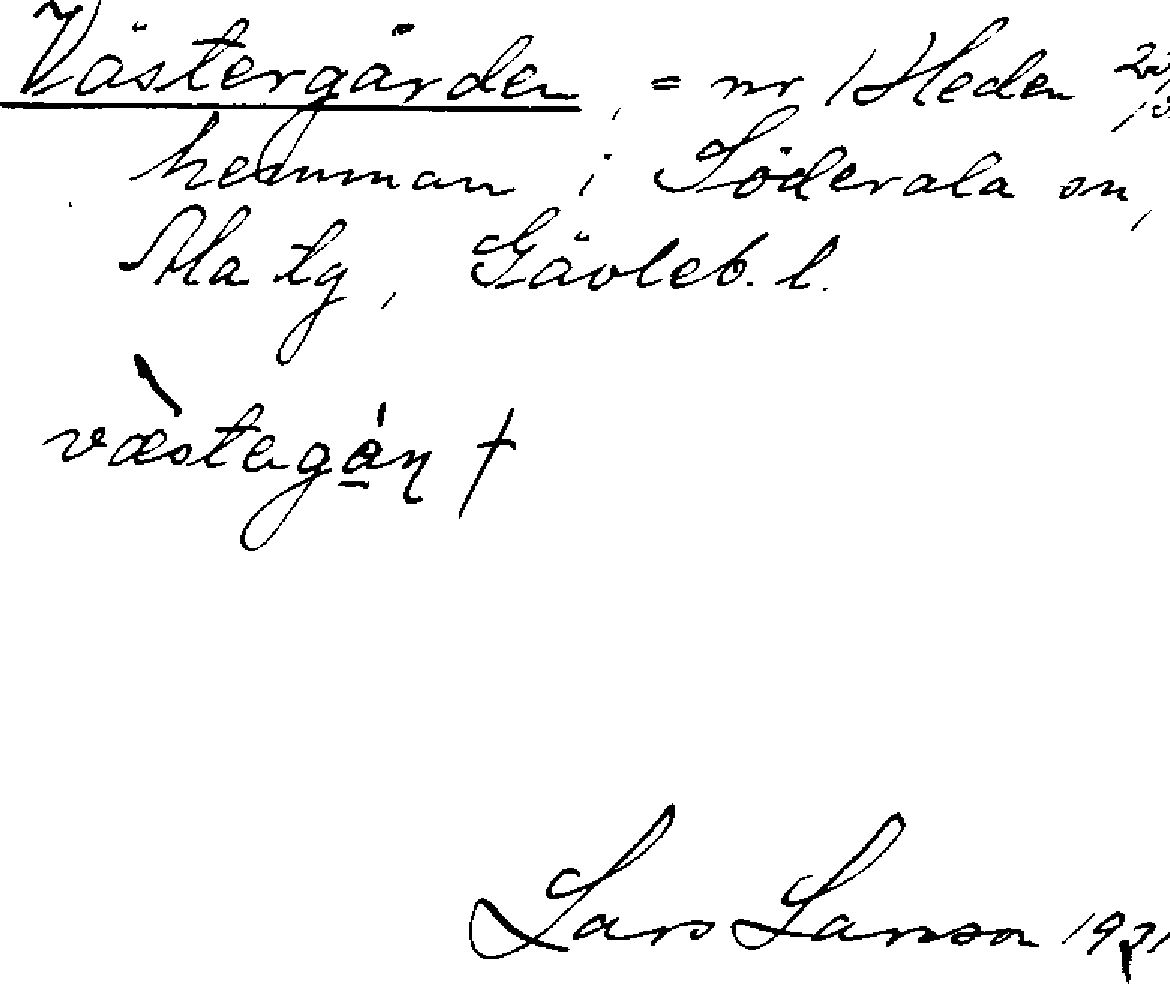 Västergården, = nr 1 Heden
hemman i Söderala sn,
Ala tg, Gävleb. l.
væstagån †
Lars Larsson 1931